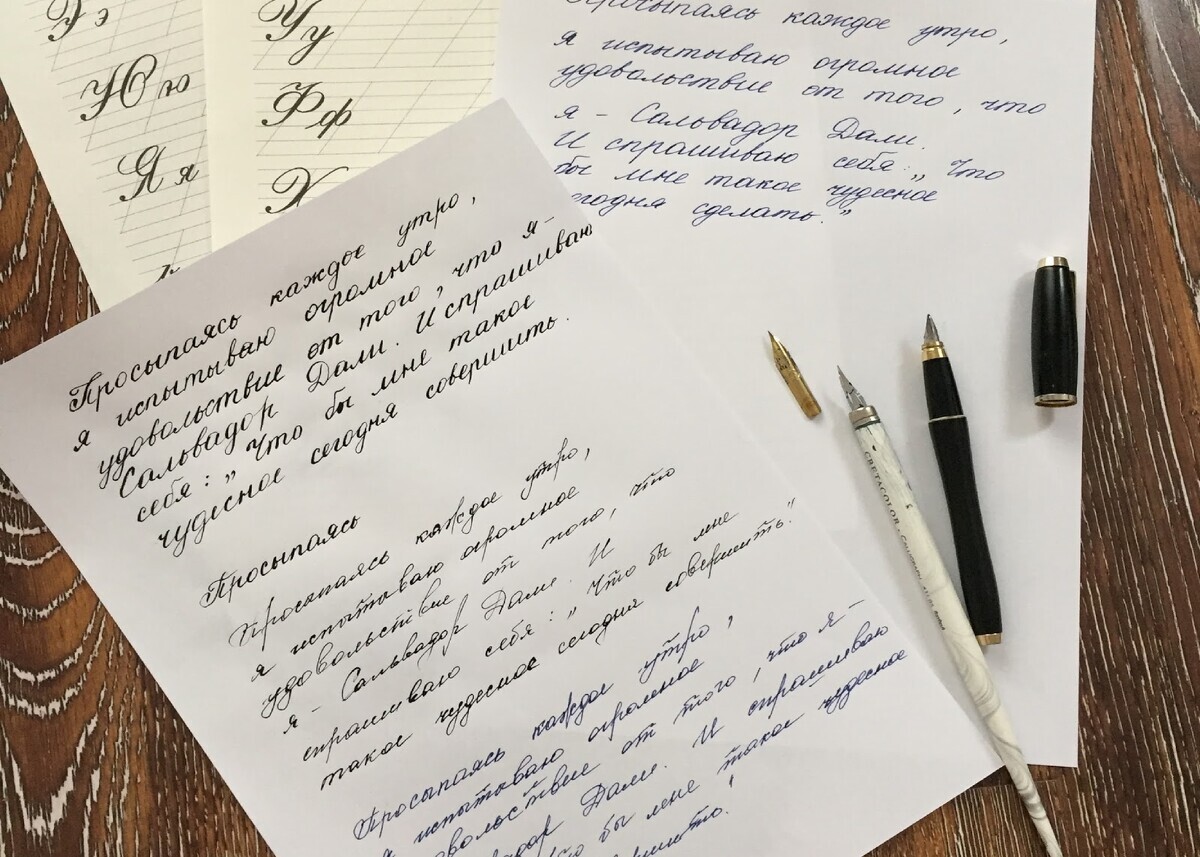 Уу
Юю
Фф
Яя
Х
Просыпаясь каждое утро,
я испытываю огромное
удовольствие от того, что
я - Сальвадор Дали.
И спрашиваю себя: „Что
бы мне такое чудесное
сегодня сделать.”
Просыпаясь каждое утро,
я испытываю огромное
удовольствие от того, что я -
Сальвадор Дали. И спрашиваю
себя: „Что бы мне такое
чудесное сегодня совершить.
Просыпаясь
Просыпаясь каждое утро,
я испытываю огромное
удовольствие от того, что
я - Сальвадор Дали. И
спрашиваю себя: „Что бы мне
такое чудесное сегодня совершить.”
Просыпаясь каждое утро,
я испытываю огромное
от того, что я -
Дали. И спрашиваю
бы мне такое чудесное
CRETACOLOR